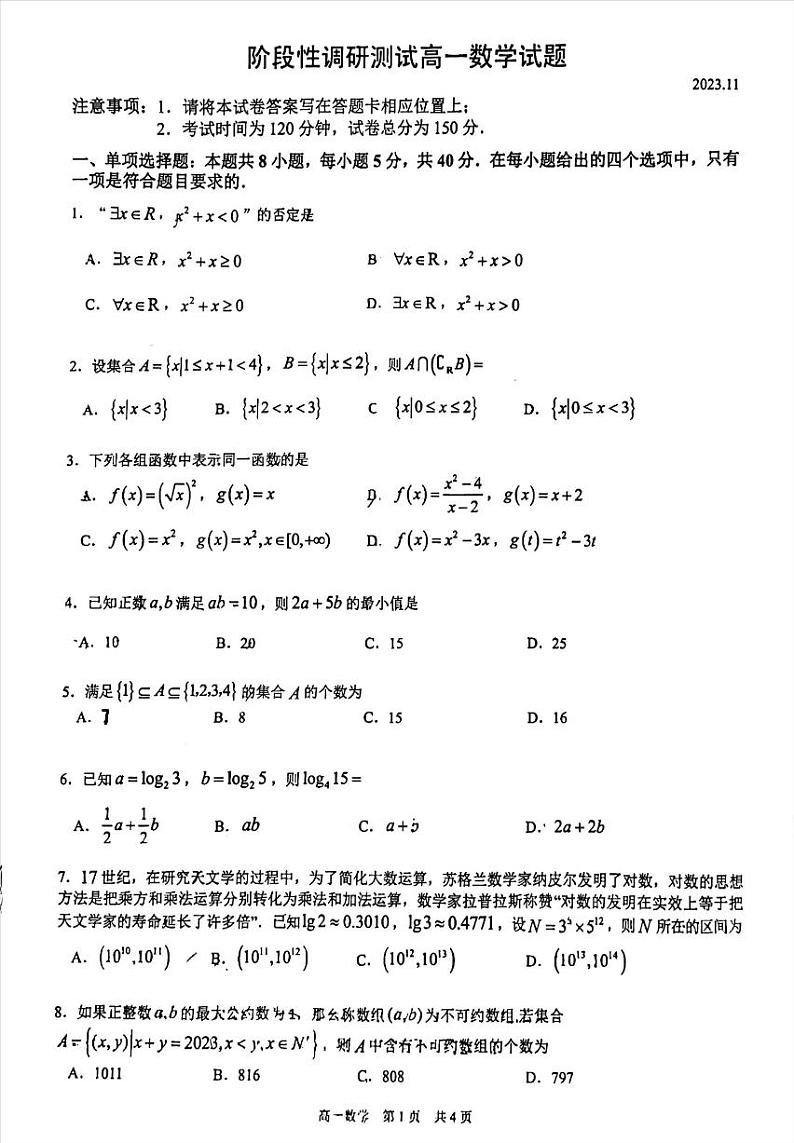 阶段性调研测试高一数学试题
2023.11
注意事项：1．请将本试卷答案写在答题卡相应位置上；
2．考试时间为 120 分钟，试卷总分为 150 分．
一、单项选择题：本题共 8 小题，每小题 5 分，共 40 分．在每小题给出的四个选项中，只有
一项是符合题目要求的．
1．“∃x∈R，x²+x<0”的否定是
A．∃x∈R，x²+x≥0 B ∀x∈R，x²+x>0
C．∀x∈R，x²+x≥0 D．∃x∈R，x²+x>0
2．设集合 A={x|1≤x+1<4}，B={x|x≤2}，则 A∩(∁RB)=
A．{x|x<3} B．{x|2<x<3} C {x|0≤x≤2} D．{x|0≤x<3}
3．下列各组函数中表示同一函数的是
A．f(x)=(√x)²，g(x)=x B．f(x)=(x²-4)/(x-2)，g(x)=x+2
C．f(x)=x²，g(x)=x²,x∈[0,+∞) D．f(x)=x²-3x，g(t)=t²-3t
4．已知正数 a,b 满足 ab=10，则 2a+5b 的最小值是
A．10 B．20 C．15 D．25
5．满足{1}⊆A⊆{1,2,3,4}的集合 A 的个数为
A．7 B．8 C．15 D．16
6．已知 a=log₂3，b=log₂5，则 log₄15=
A．1/2a+1/2b B．ab C．a+b D．2a+2b
7．17 世纪，在研究天文学的过程中，为了简化大数运算，苏格兰数学家纳皮尔发明了对数，对数的思想
方法是把乘方和乘法运算分别转化为乘法和加法运算，数学家拉普拉斯称赞“对数的发明在实效上等于把
天文学家的寿命延长了许多倍”．已知 lg2≈0.3010，lg3≈0.4771，设 N=3⁴×5¹²，则 N 所在的区间为
A．(10¹⁰,10¹¹) B．(10¹¹,10¹²) C．(10¹²,10¹³) D．(10¹³,10¹⁴)
8．如果正整数 a,b 的最大公约数为 1，那么称数组(a,b)为不可约数组.若集合
A={(x,y)|x+y=2023,x<y,x∈N*}，则 A 中含有不可约数组的个数为
A．1011 B．816 C．808 D．797
高一数学 第 1 页 共 4 页